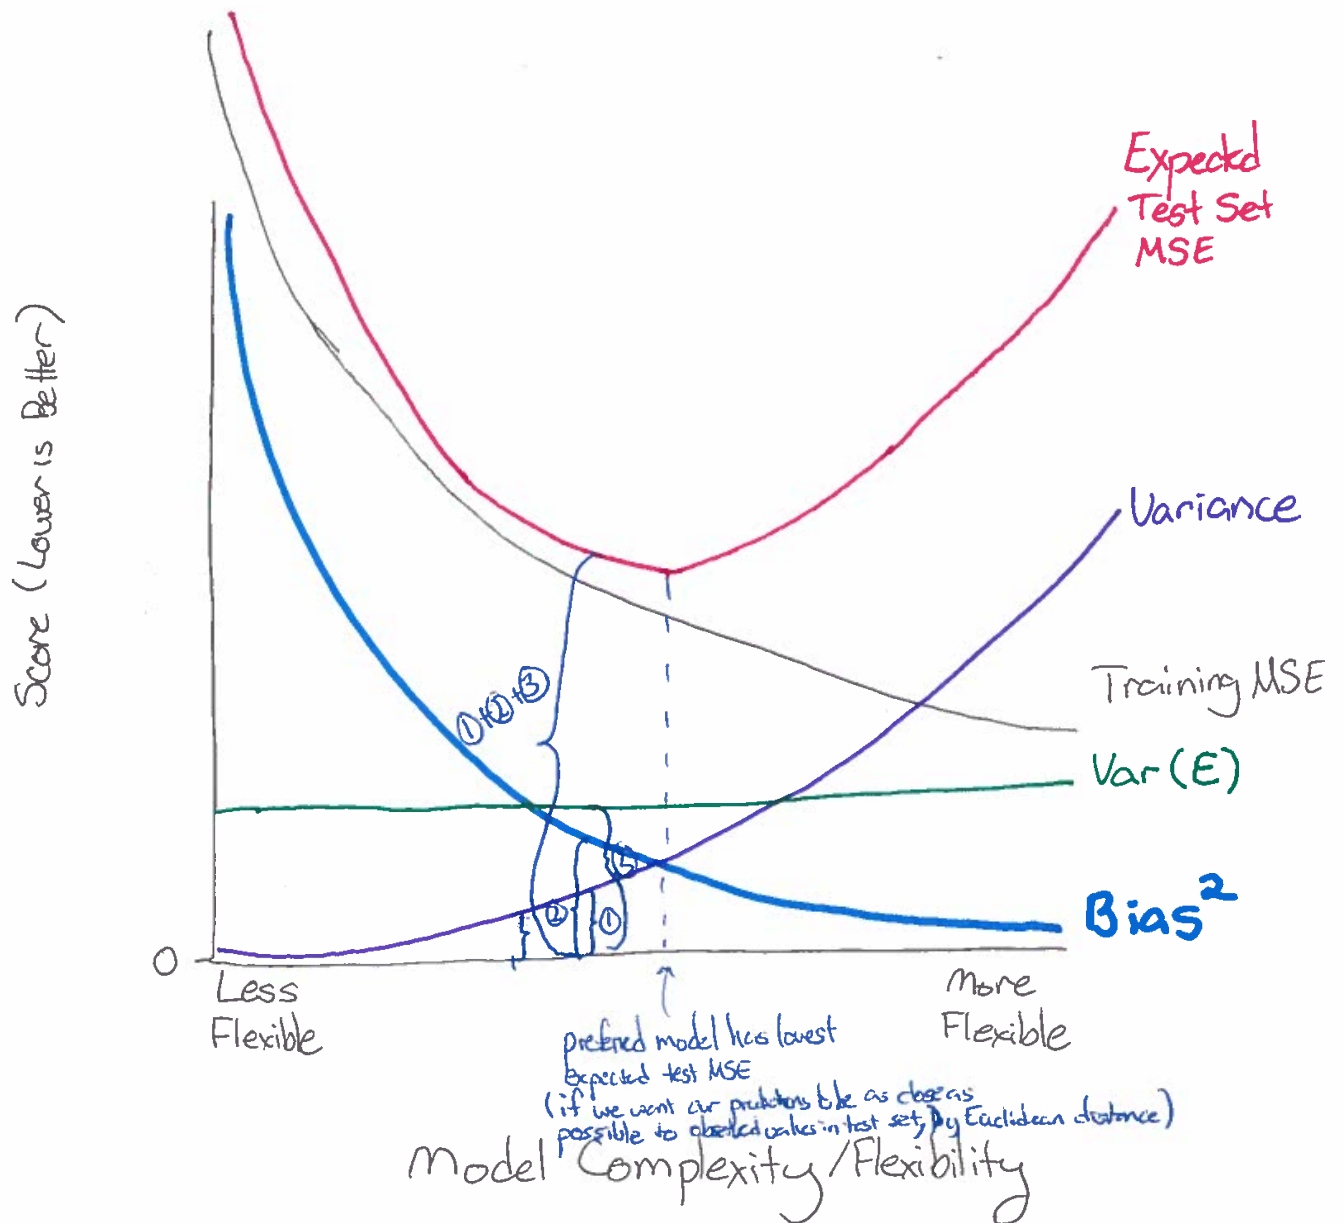 Expected
Test Set
MSE
Score (Lower is Better)
Variance
①+②+③
Training MSE
Var(E)
②
①
Bias²
0
Less
Flexible
More
Flexible
preferred model has lowest
Expected test MSE
(if we want our predictions to be as close as
possible to observed values in test set, by Euclidean distance)
Model Complexity/Flexibility